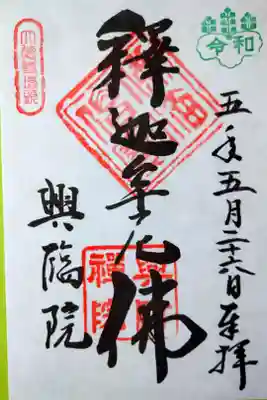 令和
五年五月二十六日奉拝
釋迦牟尼佛
興臨院